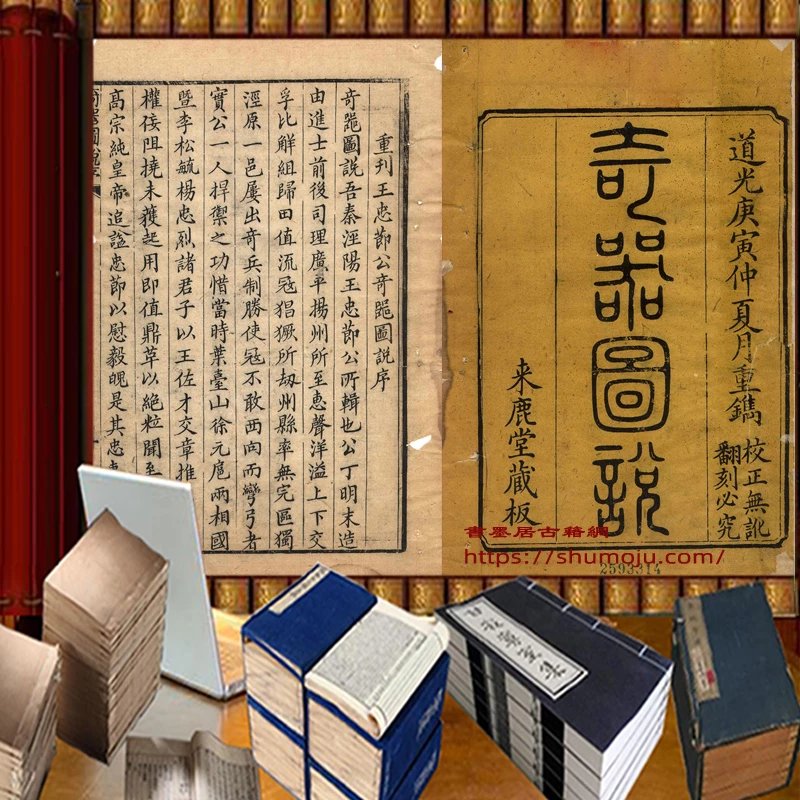 道光庚寅仲夏月重鐫
校正無訛
翻刻必究
奇器圖說
来鹿堂藏板
重刊王忠節公奇噐圖說序
奇噐圖說吾秦涇陽王忠節公所輯也公丁明末造
由進士前後司理廣平揚州所至惠聲洋溢上下交
孚比解組歸田值流冦猖獗所刼州縣率無完區獨
涇原一邑屢出奇兵制勝使冦不敢西向而彎弓者
實公一人捍禦之功惜當時葉臺山徐元扈兩相國
暨李松毓楊忠烈諸君子以王佐才交章推
權阻撓未獲起用即值鼎革以絶粒聞至
高宗純皇帝追諡忠節以慰毅魄是其忠
書墨居古籍網
https://shumoju.com/
2593314